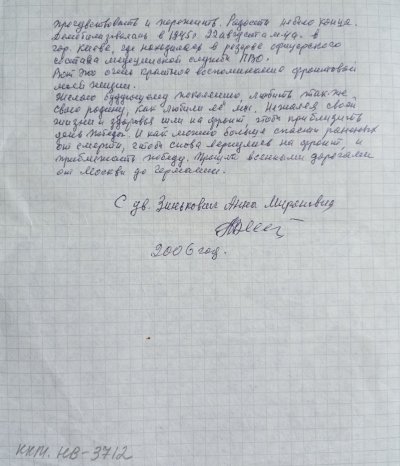 прочувствовать и пережить. Радости небыло конца.
Демобилизовалась в 1945г 22 августа м-ца. в
гор. Киеве, где находилась в резерве офицерского
состава медицинской службы ПВО.
Вот это очень краткое воспоминание фронтовой
моей жизни.
Желаю будующему поколению, любить так же
свою родину, как любили её мы. Нежалея своей
жизни и здоровья шли на фронт, чтобы приблизить
день Победы. И как можно больше спасти раненных
от смерти, чтобы снова вернулись на фронт, и
приближать победу. Прошли военными дорогами
от Москвы до Германии.
С ув. Зинькович Анна Мироновна
2006 год.
ККМ. НВ-3712